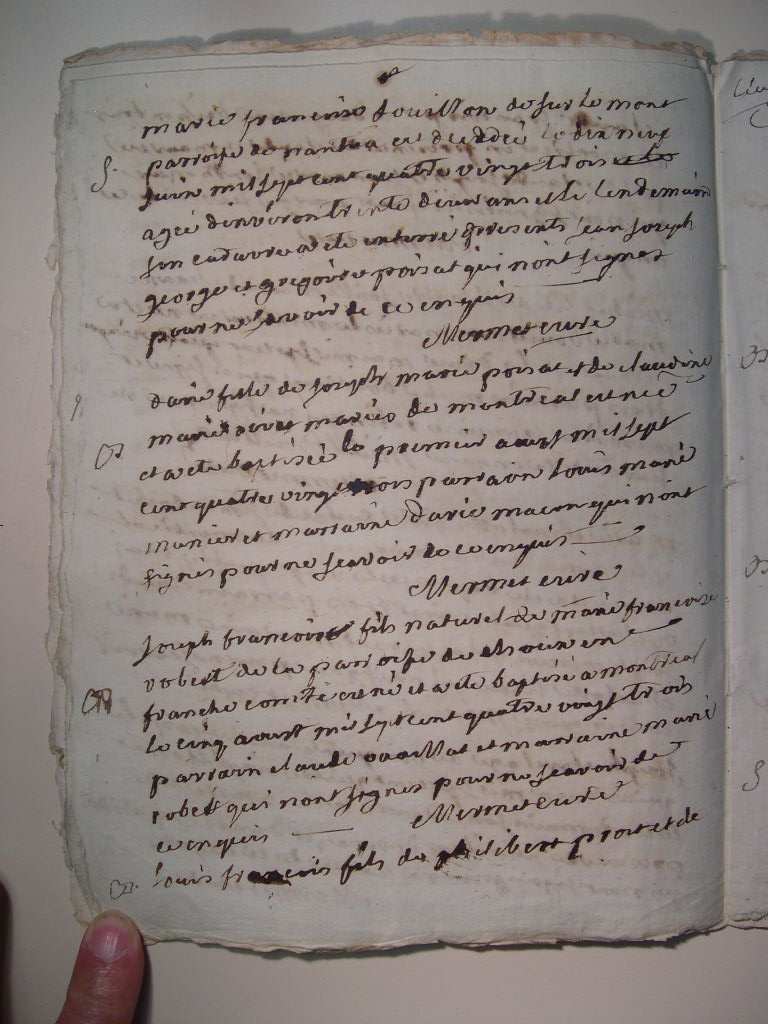 marie francoise bouillon de sur le mont
S. parroise de nantua est decedeé le dix neuf
juin mil sept cent quatre vingt trois
ageé denviron trente deux ans et le lendemain
son cadavre a ete enterré presents jean joseph
george et gregoire poisat qui n'ont signes
pour ne scavoir de ce enquis
Mermet curé
darie fille de joseph marie poisat et de claudine
marie mariés de montreal est neé
et a ete baptiseé le premier aoust mil sept
cent quatre vingt trois parrain louis marie
et marraine darie macon qui n'ont
signes pour ne scavoir de ce enquis
Mermet curé
joseph francois fils naturel de marie francoise
robert de la parroisse de en
franche comté est né et a ete baptisé a montreal
le cinq aoust mil sept cent quatre vingt trois
parrain claude et marraine marie
robert qui n'ont signes pour ne scavoir de
ce enquis
Mermet curé
louis francois fils de philibert prost et de